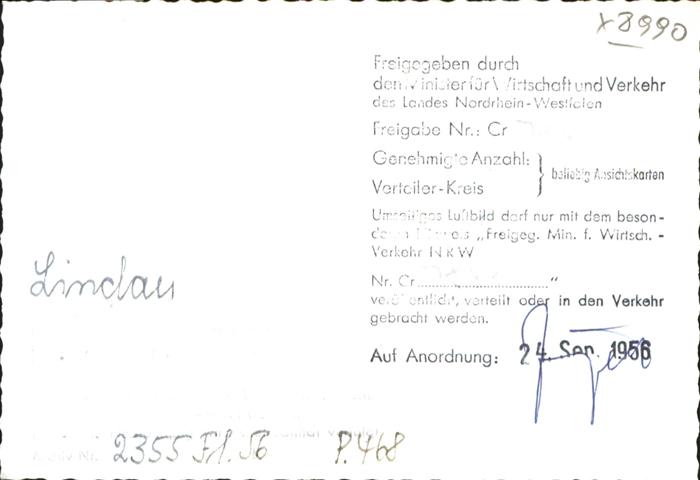 x8990
Freigegeben durch
den Minister für Wirtschaft und Verkehr
des Landes Nordrhein-Westfalen
Freigabe Nr.: Cr
Genehmigte Anzahl: } beliebig Ansichtskarten
Verteiler-Kreis
Umseitiges Luftbild darf nur mit dem beson-
deren Hinweis „Freigeg. Min. f. Wirtsch. -
Verkehr NRW
Nr. Cr ........................ “
veröffentlicht, verteilt oder in den Verkehr
gebracht werden.
Auf Anordnung: 24. Sep. 1956
Lindau
2355 Fl. 56 P. 468